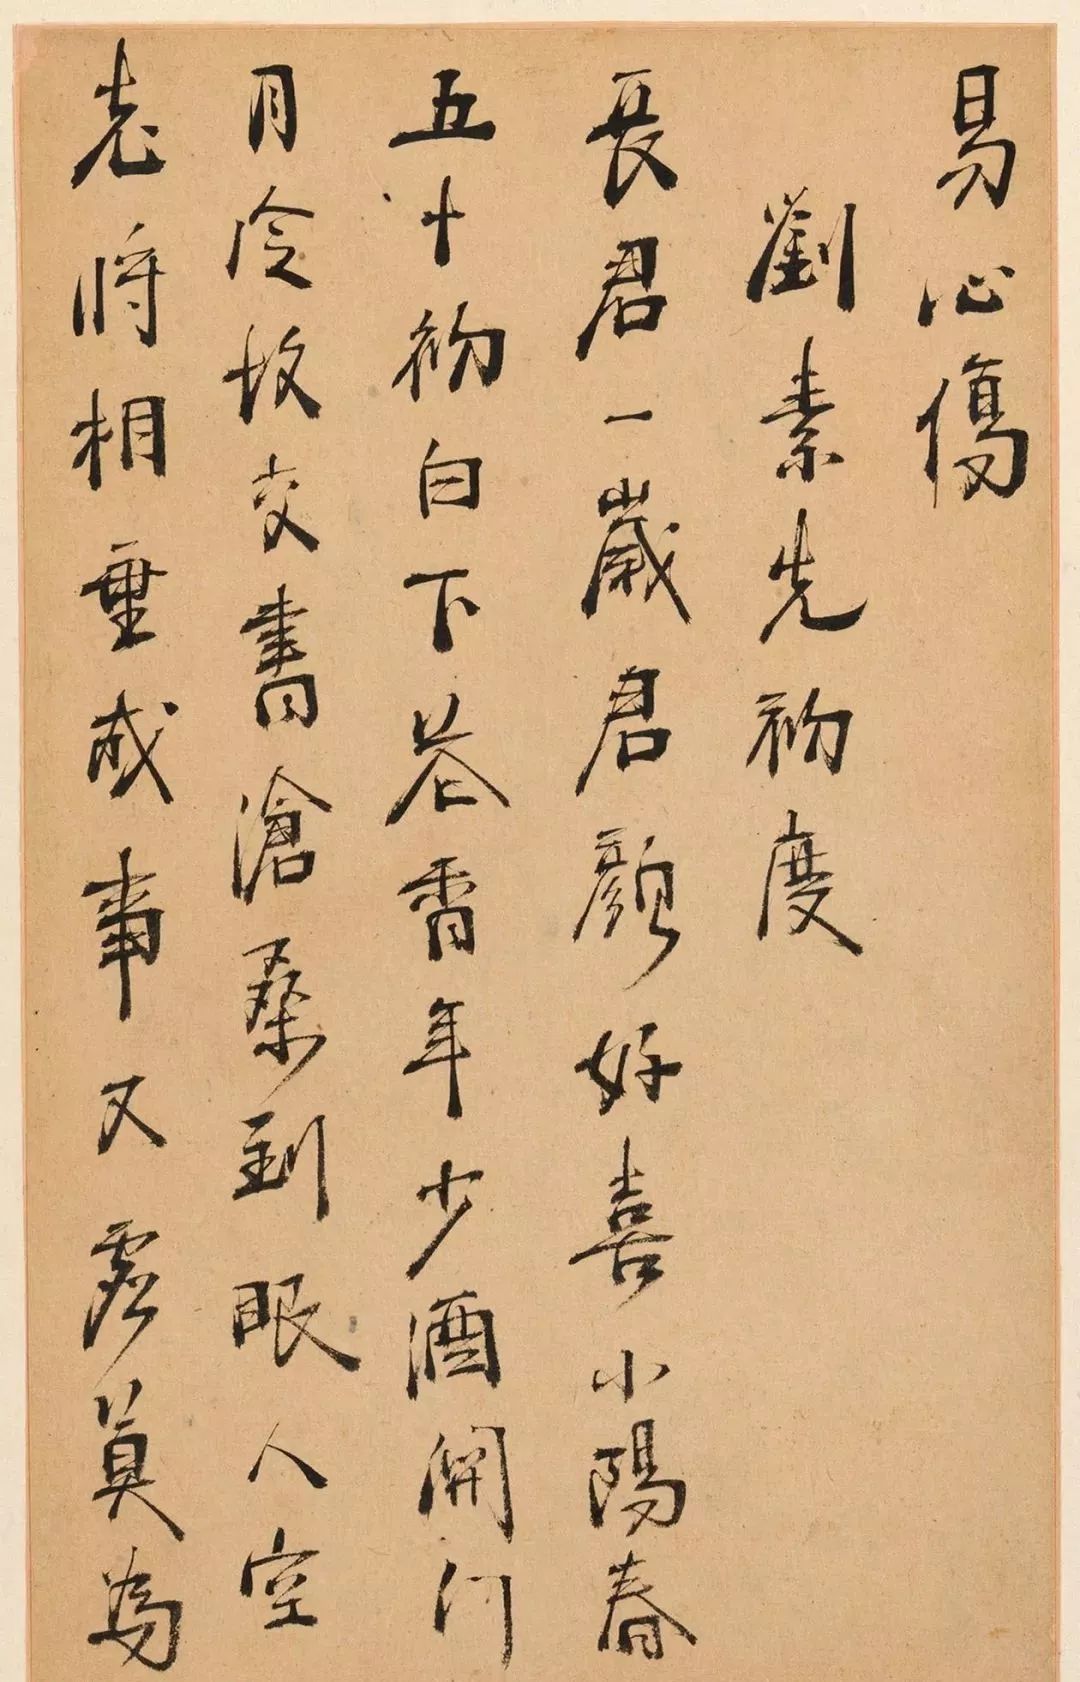 易心傷
劉素先初度
長君一歲君顏好喜小陽春
五十初白下花香年少酒開門
月冷故交書滄桑到眼人空
老將相垂成事又虛莫為